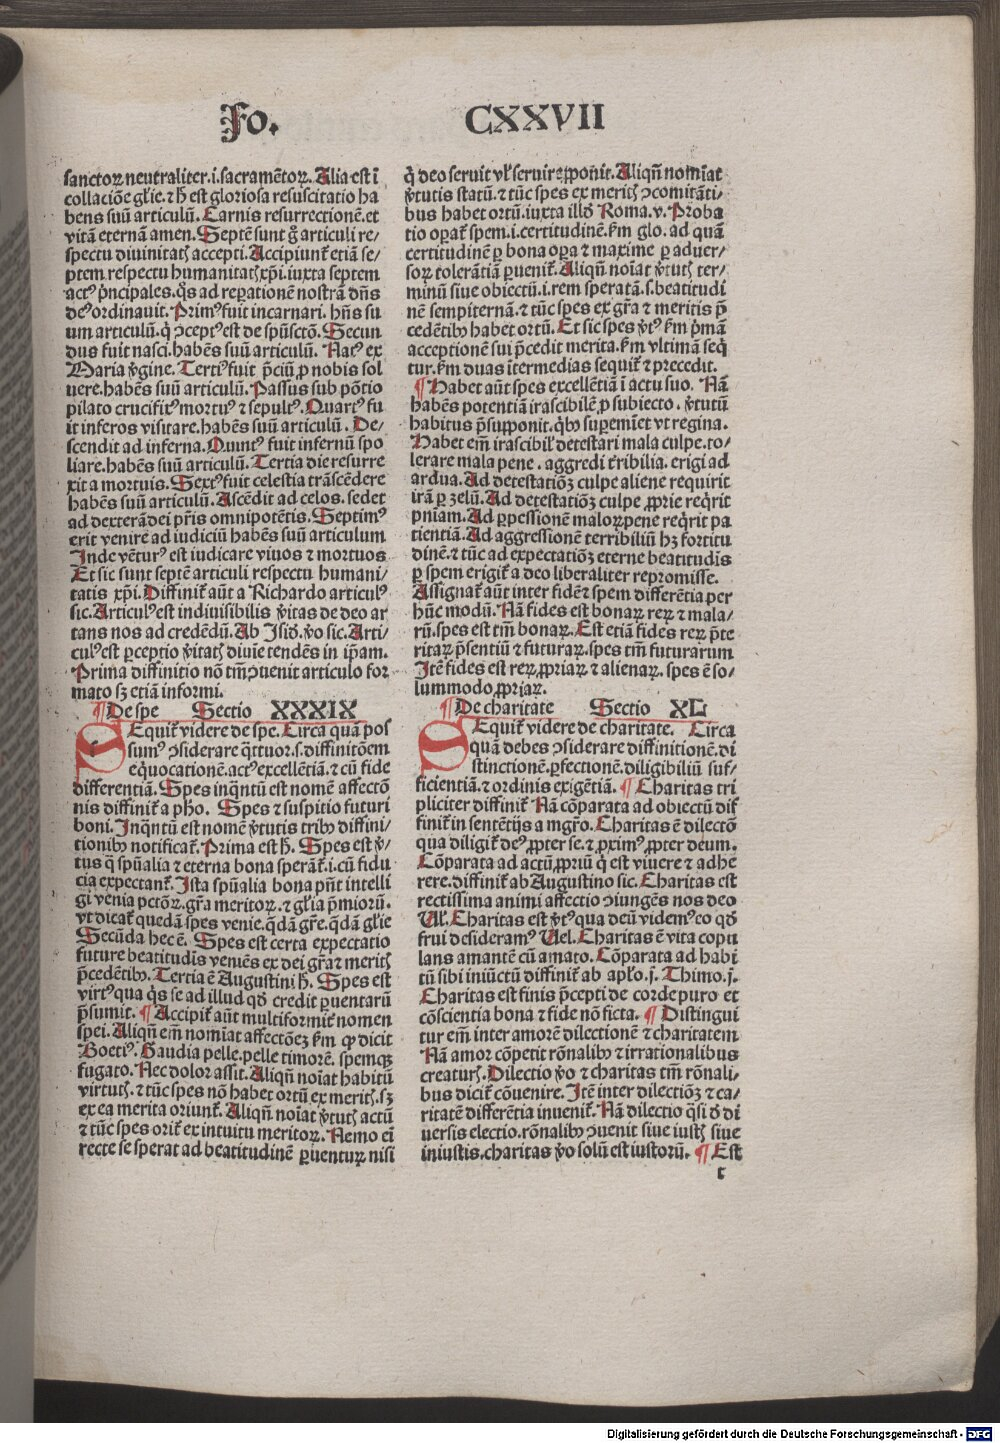 Fo. CXXVII
sanctoꝝ neutraliter.i.sacramẽtoꝝ. Alia est ĩ
collaciõe gl̃ie. ⁊ h̃ est gloriosa resuscitatio ha
bens suũ articulũ. Carnis resurrectionẽ.et
vitã eternã amen. Septẽ sunt g̃ articuli re/
spectu diuinitatꝭ accepti. Accipiunt᷑ etiã se/
ptem.respectu humanitatꝭ xp̃i.iuxta septem
actꝰ p̃ncipales.q̃s ad reꝑationẽ nostrã dñs
deꝰ ordinauit. Primꝰ fuit incarnari. hñs su
um articulũ.q̇ ꝯceptꝰ est de sp̃usctõ. Secun
dus fuit nasci.habẽs suũ articulũ. Natꝰ ex
Maria v̇gine. Tertiꝰ fuit p̃ciũ ꝓ nobis sol
uere.habẽs suũ articulũ. Passus sub põtio
pilato crucifixꝰ mortuꝰ ⁊ sepultꝰ. Quartꝰ fu
it inferos visitare.habẽs suũ articulũ. De/
scendit ad inferna. Quintꝰ fuit infernũ spo
liare.habẽs suũ articulũ. Tertia die resurre
xit a mortuis. Sextꝰ fuit celestia trãscẽdere
habẽs suũ articulũ. Ascẽdit ad celos. sedet
ad dexterã dei pr̃is omnipotẽtis. Septimꝰ
erit venire ad iudiciũ habẽs suũ articulum
Inde vẽturꝰ est iudicare viuos ⁊ mortuos
Et sic sunt septẽ articuli respectu humani/
tatis xp̃i. Diffinit᷑ aũt a Richardo articulꝰ
sic. Articulꝰ est indiuisibilis v̇itas de deo ar
tans nos ad credẽdũ. Ab Isid̃. v̇o sic. Arti/
culꝰ est ꝑceptio v̇itatꝭ diuĩe tendẽs in ip̃am.
Prima diffinitio nõ tm̃ ꝯuenit articulo for
mato sꝫ etiã informi.
¶ De spe Sectio XXXIX
SEquit᷑ videre de spe. Circa quã pos
sumꝰ ꝯsiderare q̃ttuor.s.diffinitõem
eq̇uocationẽ.actꝰ excellẽtiã.⁊ cũ fide
differentiã. Spes inq̃ntũ est nomẽ affectõ
nis diffinit᷑ a ph̃o. Spes ⁊ suspitio futuri
boni. Inq̃ntũ est nomẽ v̇tutis tribꝰ diffini/
tionibꝰ notificat᷑. Prima est h̃. Spes est v̇/
tus q̃ sp̃ualia ⁊ eterna bona sperãt᷑.i.cũ fidu
cia expectant᷑. Ista sp̃ualia bona pñt intelli
gi venia pctõꝝ.gr̃a meritoꝝ.⁊ gl̃ia p̃mioꝝ.
vt dicat᷑ quedã spes venie.q̃dã gr̃e.q̃dã gl̃ie
Secũda hec ẽ. Spes est certa expectatio
future beatitudis veniẽs ex dei gr̃a ⁊ meritꝭ
p̃cedẽtibꝰ. Tertia ẽ Augustini h̃. Spes est
virtꝰ qua q̇s se ad illud qđ credit ꝑuentarũ
p̃sumit. ¶ Accipit᷑ aũt multiformit᷑ nomen
spei. Aliqñ em̃ nomĩat affectõeꝫ ẜm ꝙ dicit
Boetiꝰ. Gaudia pelle.pelle timorẽ. spemqꝫ
fugato. Nec dolor assit. Aliqñ noĩat habitũ
virtutꝭ.⁊ tũc spes nõ habet ortũ ex meritꝭ.sꝫ
ex ea merita oriunt᷑. Aliqñ noĩat v̇tutꝭ actũ
⁊ tũc spes orit᷑ ex intuitu meritoꝝ. Nemo em̃
recte se sperat ad beatitudinẽ ꝑuenturꝝ nisi
q̇ deo seruit vl̃ seruire ꝓponit. Aliqñ nomĩat
v̇tutis statũ.⁊ tũc spes ex meritꝭ ꝯcomitãti/
bus habet ortũ.iuxta illđ Roma.v. Proba
tio oꝑat᷑ spem.i.certitudinẽ.ẜm glo. ad quã
certitudinẽ ꝑ bona oꝑa ⁊ maxime ꝑ aduer/
soꝝ tolerãtiã ꝑuenit᷑. Aliqñ noĩat v̇tutꝭ ter/
minũ siue obiectũ.i.rem speratã.s.beatitudi
nẽ sempiternã.⁊ tũc spes ex gr̃a ⁊ meritis p̃
cedẽtibꝰ habet ortũ. Et sic spes v̇tꝰ ẜm p̃mã
acceptionẽ sui p̃cedit merita.ẜm vltimã seq̇
tur.ẜm duas ĩtermedias sequit᷑ ⁊ precedit.
¶ Habet aũt spes excellẽtiã ĩ actu suo. Nã
habẽs potentiã irascibilẽ ꝓ subiecto. v̇tutũ
habitus p̃supponit.q̇bꝰ supemiẽt vt regina.
Habet em̃ irascibil̃ detestari mala culpe.to/
lerare mala pene. aggredi t᷑ribilia. erigi ad
ardua. Ad detestatiõꝫ culpe aliene requirit
irã ꝑ zelũ. Ad detestatiõꝫ culpe ꝓprie req̇rit
pniam. Ad ꝑpessionẽ maloꝝ pene req̇rit pa
tientiã. Ad aggressionẽ terribiliũ hꝫ fortitu
dinẽ.⁊ tũc ad expectatiõꝫ eterne beatitudis
ꝑ spem erigit᷑ a deo liberaliter repromisse.
Assignat᷑ aũt inter fidẽ ⁊ spem differẽtia per
hũc modũ. Nã fides est bonaꝝ reꝝ ⁊ mala/
rũ.spes est tm̃ bonaꝝ. Est etiã fides reꝝ p̃te
ritaꝝ p̃sentiũ ⁊ futuraꝝ.spes tm̃ futurarum
Itẽ fides est reꝝ ꝓpriaꝝ ⁊ alienaꝝ. spes ẽ so/
lummodo ꝓpriaꝝ.
¶ De charitate Sectio XL
SEquit᷑ videre de charitate. Circa
quã debes ꝯsiderare diffinitionẽ.di
stinctionẽ.ꝑfectionẽ.diligibiliũ suf/
ficientiã.⁊ ordinis exigẽtiã. ¶ Charitas tri
pliciter diffinit᷑ Nã cõparata ad obiectũ dif
finit᷑ in sentẽtijs a mgr̃o. Charitas ẽ dilectõ
qua diligit᷑ deꝰ ꝓpter se.⁊ ꝓximꝰ ꝓpter deum.
Cõparata ad actũ ꝓpriũ q̇ est viuere ⁊ adhe
rere.diffinit᷑ ab Augustino sic. Charitas est
rectissima animi affectio ꝯiungẽs nos deo
Vl̃. Charitas est v̇tꝰ qua deũ videmꝰ eo qđ
frui desideramꝰ Uel. Charitas ẽ vita copu
lans amantẽ cũ amato. Cõparata ad habi
tũ sibi iniũctũ diffinit᷑ ab apl̃o.j. Thimo.j.
Charitas est finis p̃cepti de corde puro et
cõscientia bona ⁊ fide nõ ficta. ¶ Distingui
tur em̃ inter amorẽ dilectionẽ ⁊ charitatem
Nã amor cõpetit rõnalibꝰ ⁊ irrationalibus
creaturꝭ. Dilectio v̇o ⁊ charitas tm̃ rõnali/
bus dicit᷑ cõuenire. Itẽ inter dilectiõꝫ ⁊ ca/
ritatẽ differẽtia inuenit᷑. Nã dilectio q̃si đ di
uersis electio.rõnalibꝰ ꝯuenit siue iustꝭ siue
iniustis.charitas v̇o solũ est iustorũ. ¶ Est
t
Digitalisierung gefördert durch die Deutsche Forschungsgemeinschaft - DFG